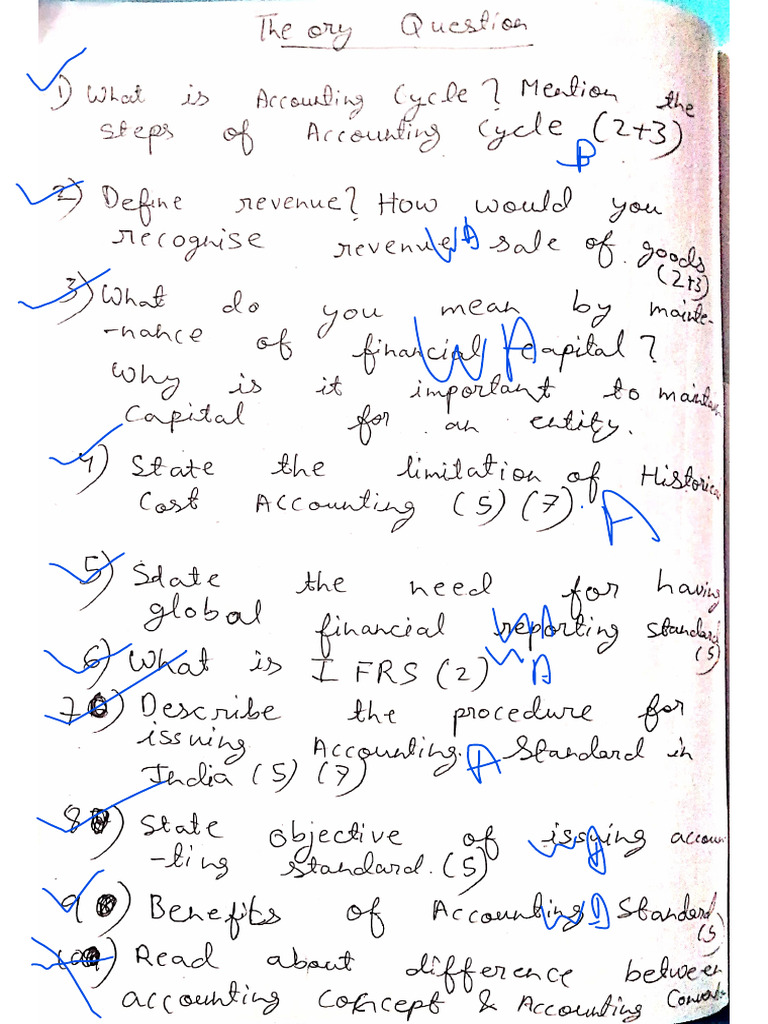 Theory Question
1) What is Accounting Cycle? Mention the
steps of Accounting Cycle (2+3)
B
2) Define revenue? How would you
recognise revenue sale of goods
(2+3)
3) What do you mean by mainte-
-nance of financial capital?
WA
Why is it important to maintain
capital for an entity.
4) State the limitation of Historical
Cost Accounting (5) (7).
A
5) State the need for having
global financial reporting standard
(5)
6) What is IFRS (2)
A
7) Describe the procedure for
issuing Accounting Standard in
A
India (5) (7)
8) State objective of issuing accoun
-ting standard. (5)
9) Benefits of Accounting Standard
(5)
10) Read about difference between
accounting concept & Accounting